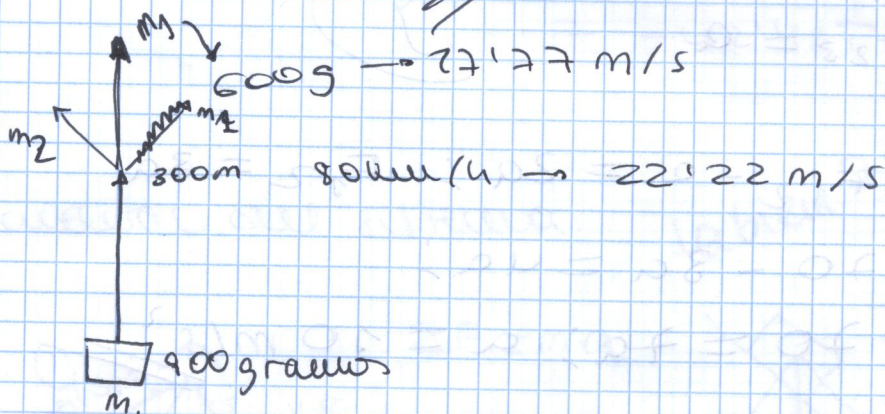 m3
600g → 27'77 m/s
m2
m1
300m 80km/h → 22'22 m/s
900 gramos
m.